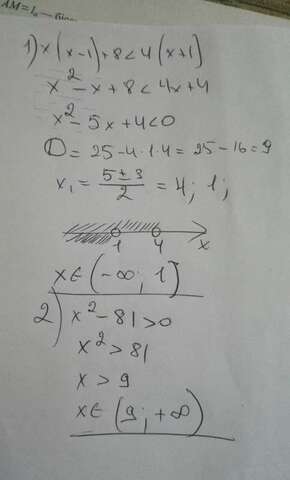 AM = L
1) x(x-1)+8<4(x+1)
x²-x+8<4x+4
x²-5x+4<0
D=25-4·1·4=25-16=9
x₁=(5±3)/2=4; 1;
1 4 x
x∈(-∞; 1]
2) x²-81>0
x²>81
x>9
x∈(9; +∞)